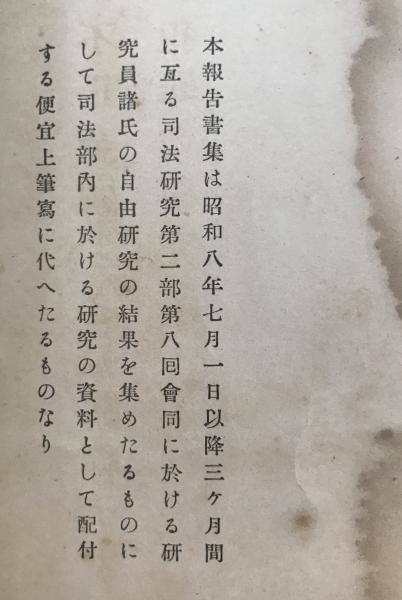 本報告書集は昭和八年七月一日以降三ケ月間
に亙る司法硏究第二部第八囘會同に於ける硏
究員諸氏の自由硏究の結果を集めたるものに
して司法部內に於ける硏究の資料として配付
する便宜上筆寫に代へたるものなり